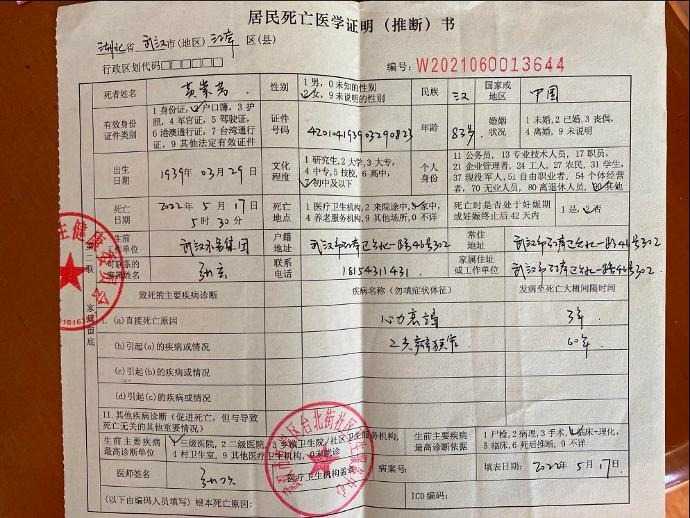 居民死亡医学证明（推断）书
湖北省 武汉市(地区) 江岸 区(县)
行政区划代码□□□□□□
编号：W2021060013644
死者姓名
性别 1 男，0 未知的性别 2 女，9 未说明的性别
民族 汉 国家或地区 中国
有效身份证件类别 1 身份证，2 户口簿，3 护照，4 军官证，5 驾驶证，6 港澳通行证，7 台湾通行证，9 其他法定有效证件
证件号码 420104193903290823
年龄 83岁
婚姻状况 1 未婚，2 已婚，3 丧偶，4 离婚，9 未说明
出生日期 1939年 03月 29日
文化程度 1 研究生，2 大学，3 大专，4 中专，5 技校，6 高中，7 初中及以下
个人身份 11 公务员，13 专业技术人员，17 职员，21 企业管理者，24 工人，27 农民，31 学生，37 现役军人，51 自由职业者，54 个体经营者，70 无业人员，80 离退休人员，90 其他
死亡日期 2022年 5月 17日 5时 30分
死亡地点 1 医疗卫生机构，2 来院途中，3 家中，4 养老服务机构，9 其他场所，0 不详
死亡时是否处于妊娠期或妊娠终止后 42天内 1 是，2 否
生前工作单位 集团
户籍地址 武汉市 46号302
常住地址 武汉市 46号302
联系电话
家属住址或工作单位 武汉市 46号302
致死的主要疾病诊断 疾病名称（勿填症状体征） 发病至死亡大概间隔时间
I. (a)直接死亡原因 心力衰竭 3年
(b)引起(a)的疾病或情况 60年
(c)引起(b)的疾病或情况
(d)引起(c)的疾病或情况
II. 其他疾病诊断（促进死亡，但与导致死亡无关的其他重要情况）
生前主要疾病最高诊断单位 1 三级医院，2 二级医院，3 乡镇卫生院/社区卫生服务机构，4 村卫生室，9 其他医疗卫生机构，0 未就诊
生前主要疾病最高诊断依据 1 尸检，2 病理，3 手术，4 临床+理化，5 临床，6 死后推断，9 不详
医师签名
医疗卫生机构盖章
病案号：
填表日期：2022年 5月 17日
（以下由编码人员填写）根本死亡原因： ICD 编码：